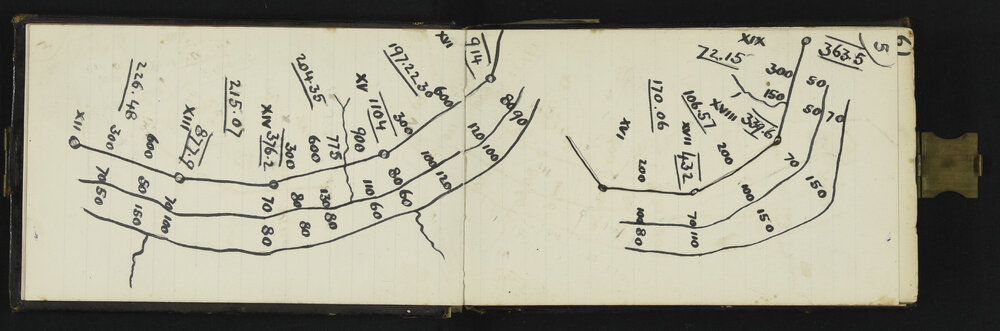 6)
5
363.5
XIX
72.15
300
150
339.6
XVIII
106.57
XVII
432
200
170.06
XVI
200
50
50
70
70
150
100
150
70
110
100
80
XVI
914
197.22.30
600
300
XV
1104
900
775
600
204.35
300
XIV
376.2
215.07
XIII
877.9
600
300
226.48
XII
80
90
120
100
100
120
80
60
110
60
130
80
80
80
70
80
70
100
50
150
70
50